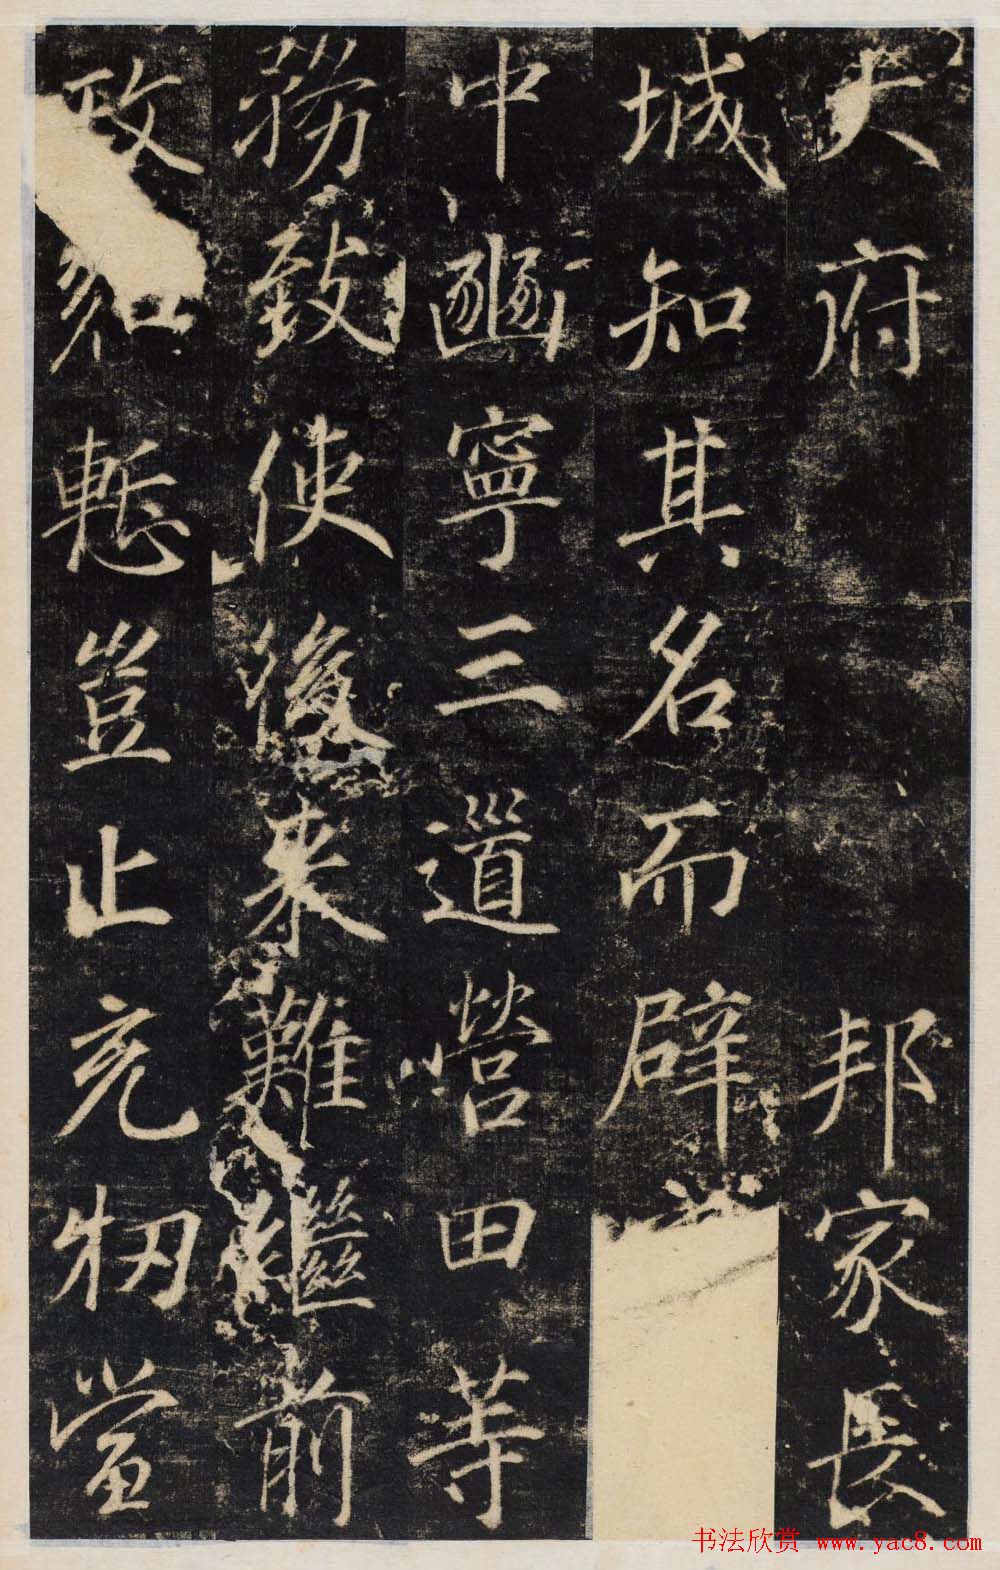 大府邦家長
城知其名而辟
中豳寧三道營田等
務致使後來難繼前
政慙豈止充牣當
书法欣赏 www.yac8.com